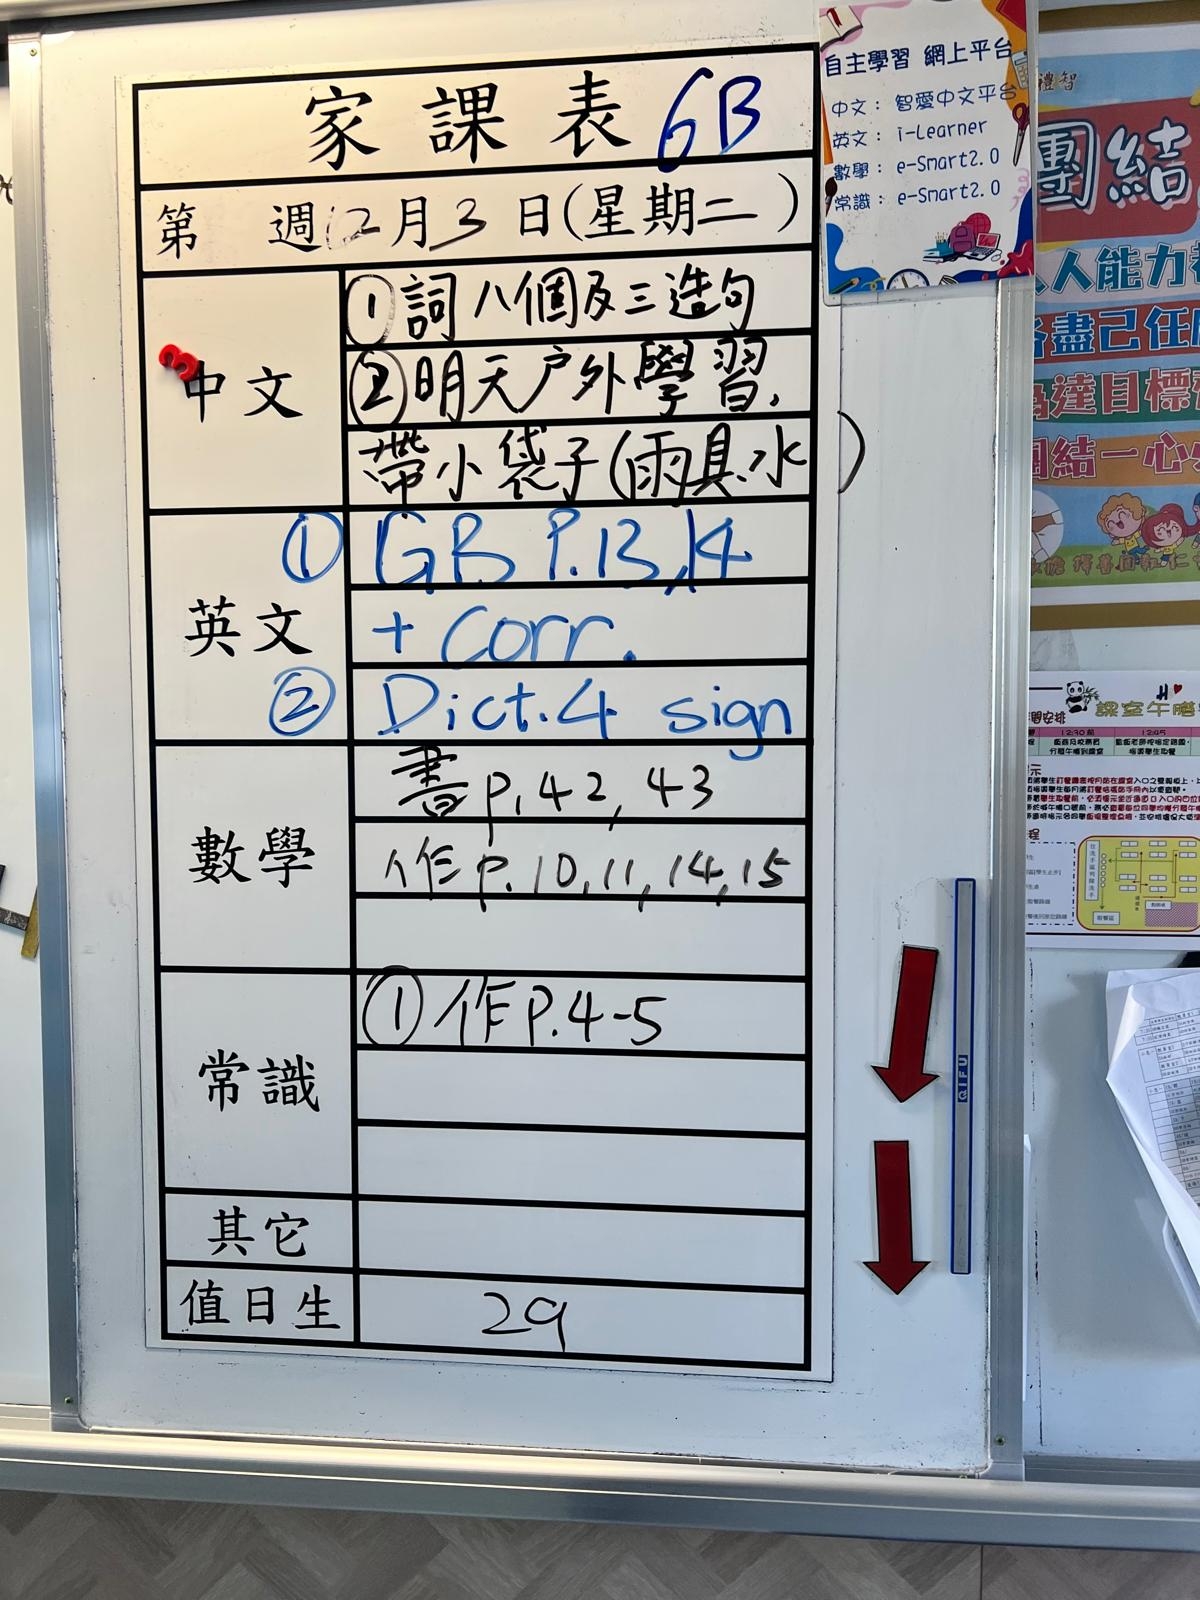 家課表 6B
第 週 12月3日(星期二)
中文
①詞八個及三造句
②明天户外學習,
帶小袋子(雨具、水)
英文
① GB P.13,14
+ Corr.
② Dict.4 sign
數學
書 P.42, 43
作 P.10,11,14,15
常識
① 作 P.4-5
其它
值日生
29
自主學習 網上平台
中文： 智愛中文平台
英文： i-Learner
數學： e-Smart2.0
常識： e-Smart2.0
禮智
團結
人人能力
各盡己任
為達目標
團結一心
課室午膳
12:30前
12:45
QIFU